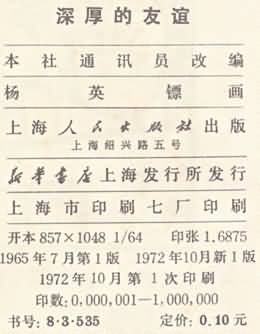 深厚的友谊
本社通讯员改编
杨英镖画
上海人民出版社出版
上海绍兴路五号
新华书店上海发行所发行
上海市印刷七厂印刷
开本857×1048 1/64 印张1.6875
1965年7月第1版 1972年10月新1版
1972年10月第1次印刷
印数:0,000,001—1,000,000
书号:8·3·535 定价:0.10元